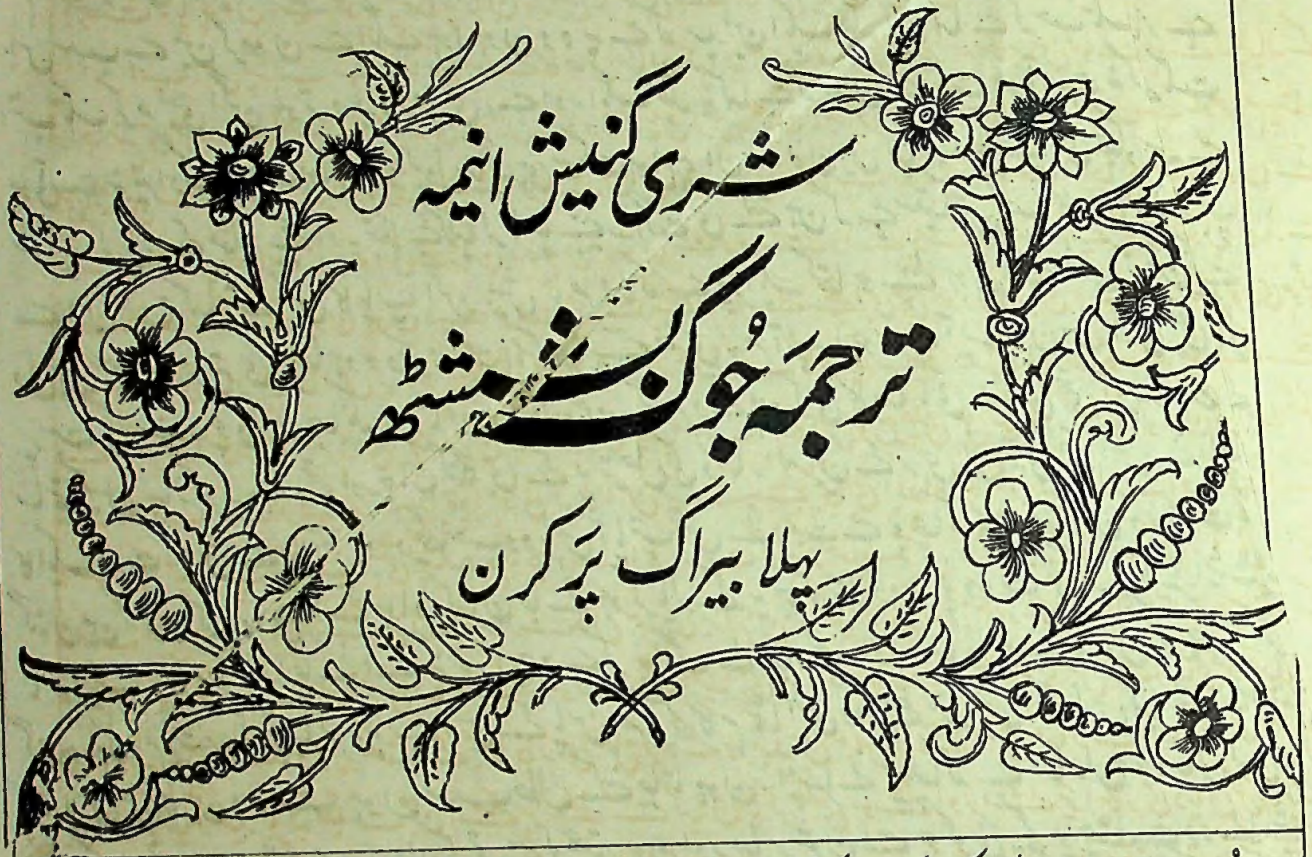 شری گنیش انیمہ
ترجمہ جُوگ بسشٹھ
پہلا بیراگ پَرکرن